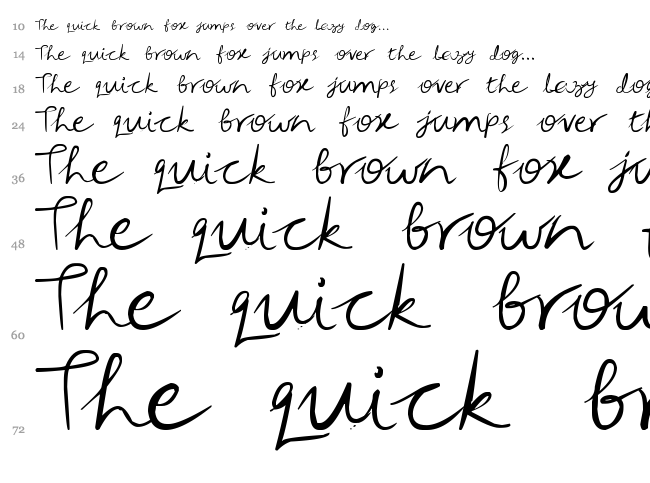 10 The quick brown fox jumps over the lazy dog...
14 The quick brown fox jumps over the lazy dog...
18 The quick brown fox jumps over the lazy dog
24 The quick brown fox jumps over th
36 The quick brown fox ju
48 The quick brown
60 The quick brow
72 The quick br